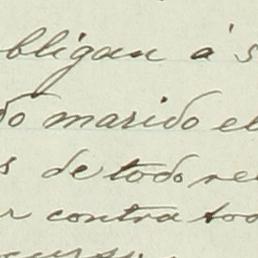 bligan á s
do marido el
s de todo re
r contra tod